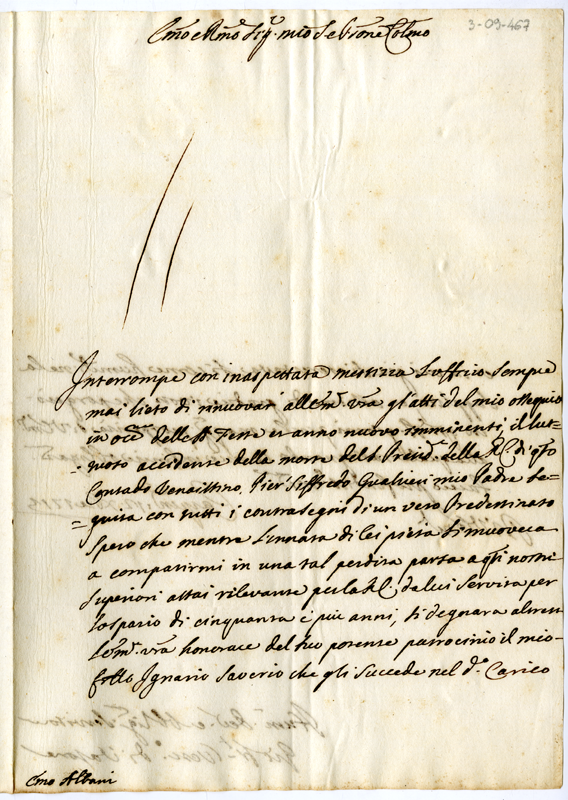 3-09-467
Emo e Rmo Sig.r mio Sig.e Prone Colmo
Interrompe con inaspettata mestizia l'offitio sempre
mai lieto di rinuovar' all'Em.a Vra gl'atti del mio ossequio
in occ.ne delle SS. Feste et anno nuovo imminenti, il lut-
=tuoso accidente della morte del S. Presid.e della R.C. di q.to
Contado Venaissino, Pier' Siffredo Gualtieri mio Padre se-
=guita con tutti i contrasegni di un vero Predestinato
Spero che mentre l'innata di lei pietà si muoverà
a compatirmi in una tal perdita parsa a q.sti nostri
superiori assai rilevante per la R.C. da lui servita per
lo spatio di cinquanta e più anni, si degnarà altresi
l'Em.a Vra honorare del suo potente patrocinio il mio
frello Ignatio Saverio che gli succede nel d.o Carico
Emo Albani